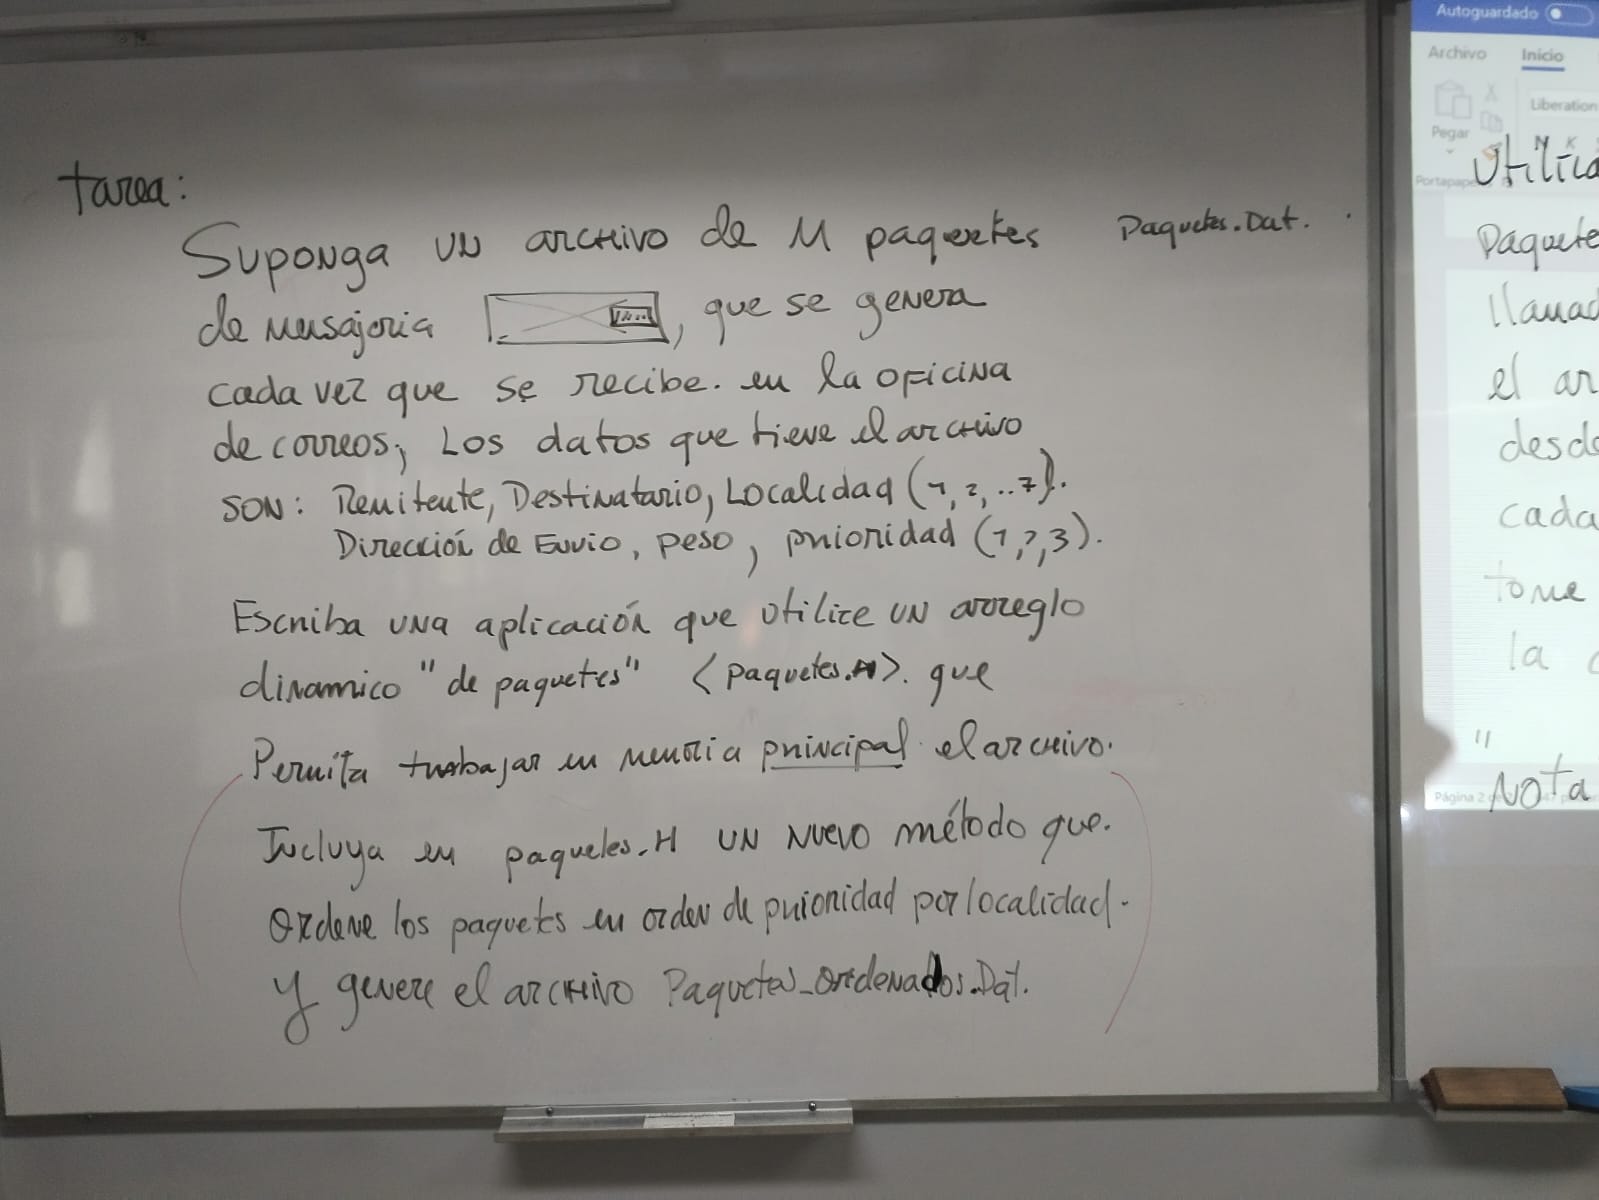 tarea:
Suponga un archivo de M paquetes Paquetes.Dat.
de mensajeria , que se genera
cada vez que se recibe. en la oficina
de correos; Los datos que tiene el archivo
son: Remitente, Destinatario, Localidad (1, 2, ..7).
Dirección de Envio, peso, prioridad (1, 2, 3).
Escriba una aplicación que utilice un arreglo
dinamico "de paquetes" <paquetes.H>. que
Permita trabajar en memoria principal el archivo.
Incluya en paquetes.H un nuevo método que.
Ordene los paquets en orden de prioridad por localidad.
y genere el archivo Paquetes_Ordenados.Dat.
Autoguardado
Archivo Inicio
Liberation
Pegar
N K
Portapape
Utiliza
Paquete
llamad
el ar
desde
cada
tome
la
"
Página 2 de
Nota